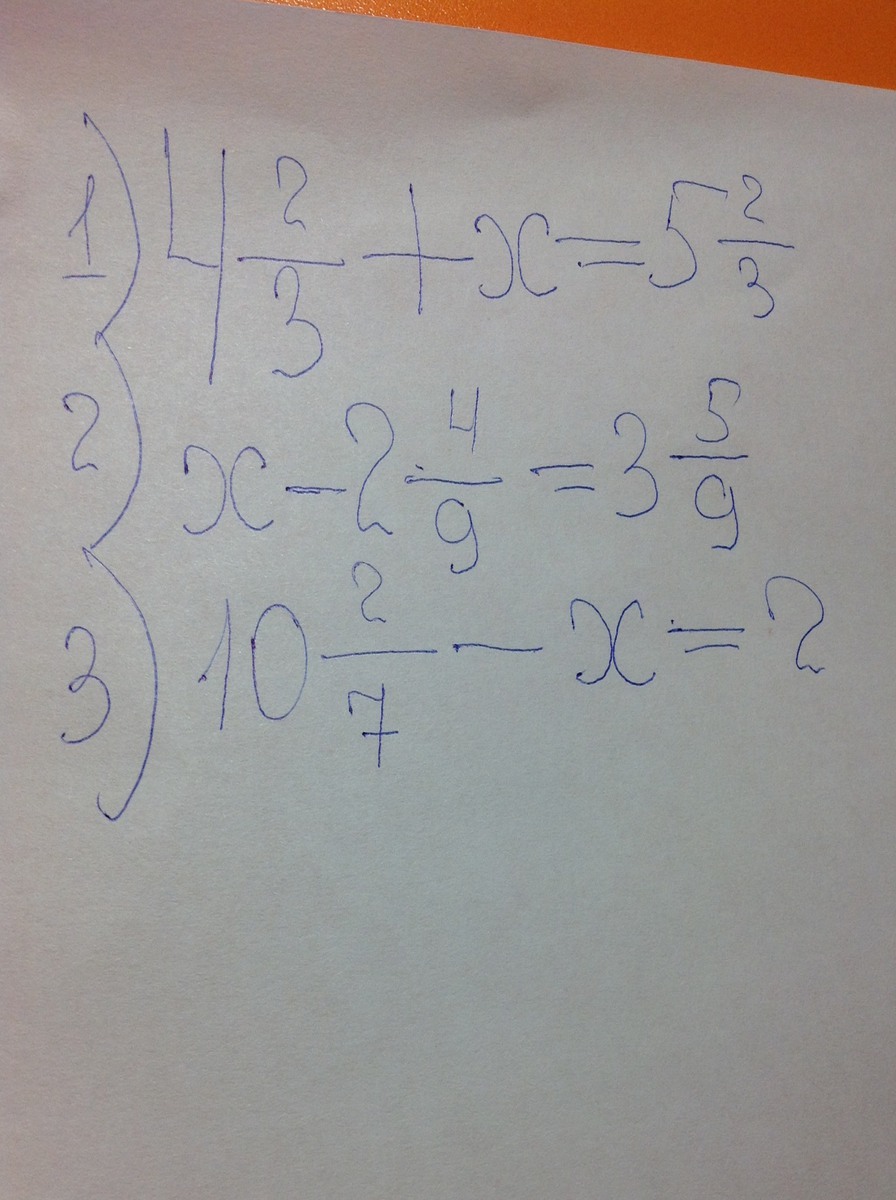 1) 4 2/3 + x = 5 2/3
2) x - 2 4/9 = 3 5/9
3) 10 2/7 - x = 2